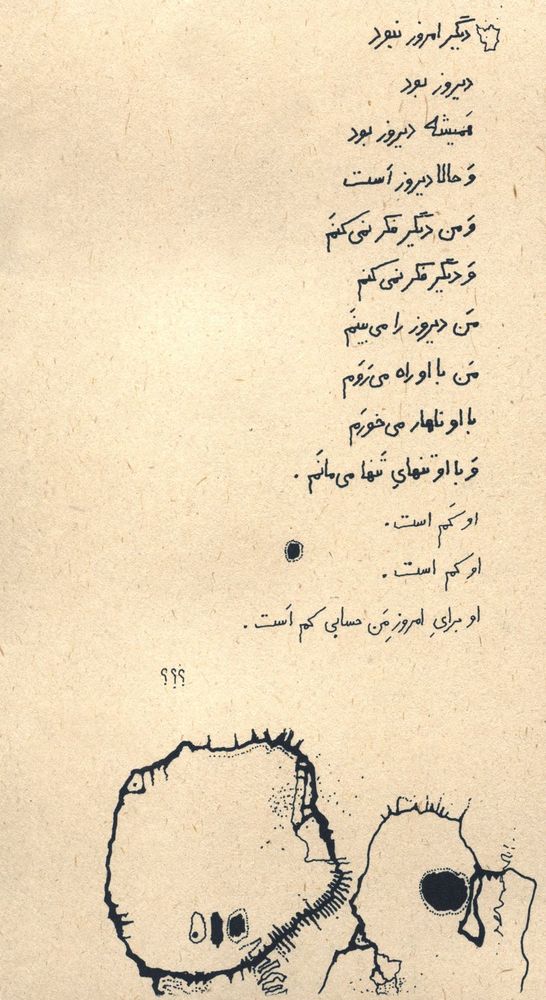 دیگر امروز نبود
دیروز بود
هَمیشه دیروز بود
وَ حالا دیروز اَست
وَ من دیگر فکر نمی‌کنَم
وَ دیگر فکر نمی‌کنم
مَن دیروز را می‌بینَم
مَن با او راه می‌رَوَم
با او ناهار می‌خورَم
وَ با او تنهایِ تَنها می‌مانَم .
او کَم است .
او کم است .
او برایِ امروزِ مَن حسابی کم اَست .
؟؟؟